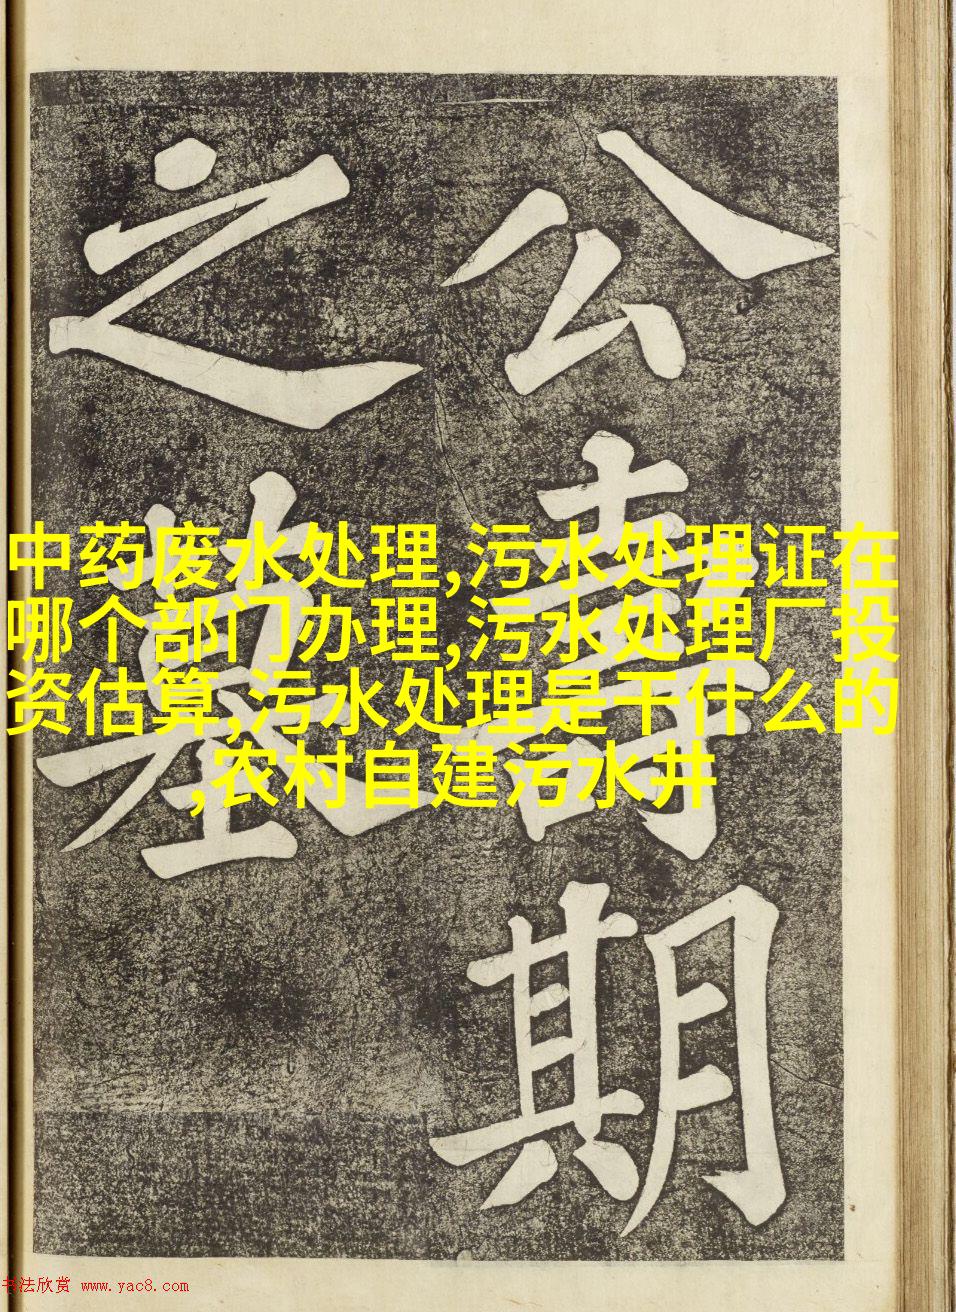 公壽期
之墓
中药废水处理,污水处理证在
哪个部门办理,污水处理厂投
资估算,污水处理是干什么的
,农村自建污水井
书法欣赏 www.yac8.com